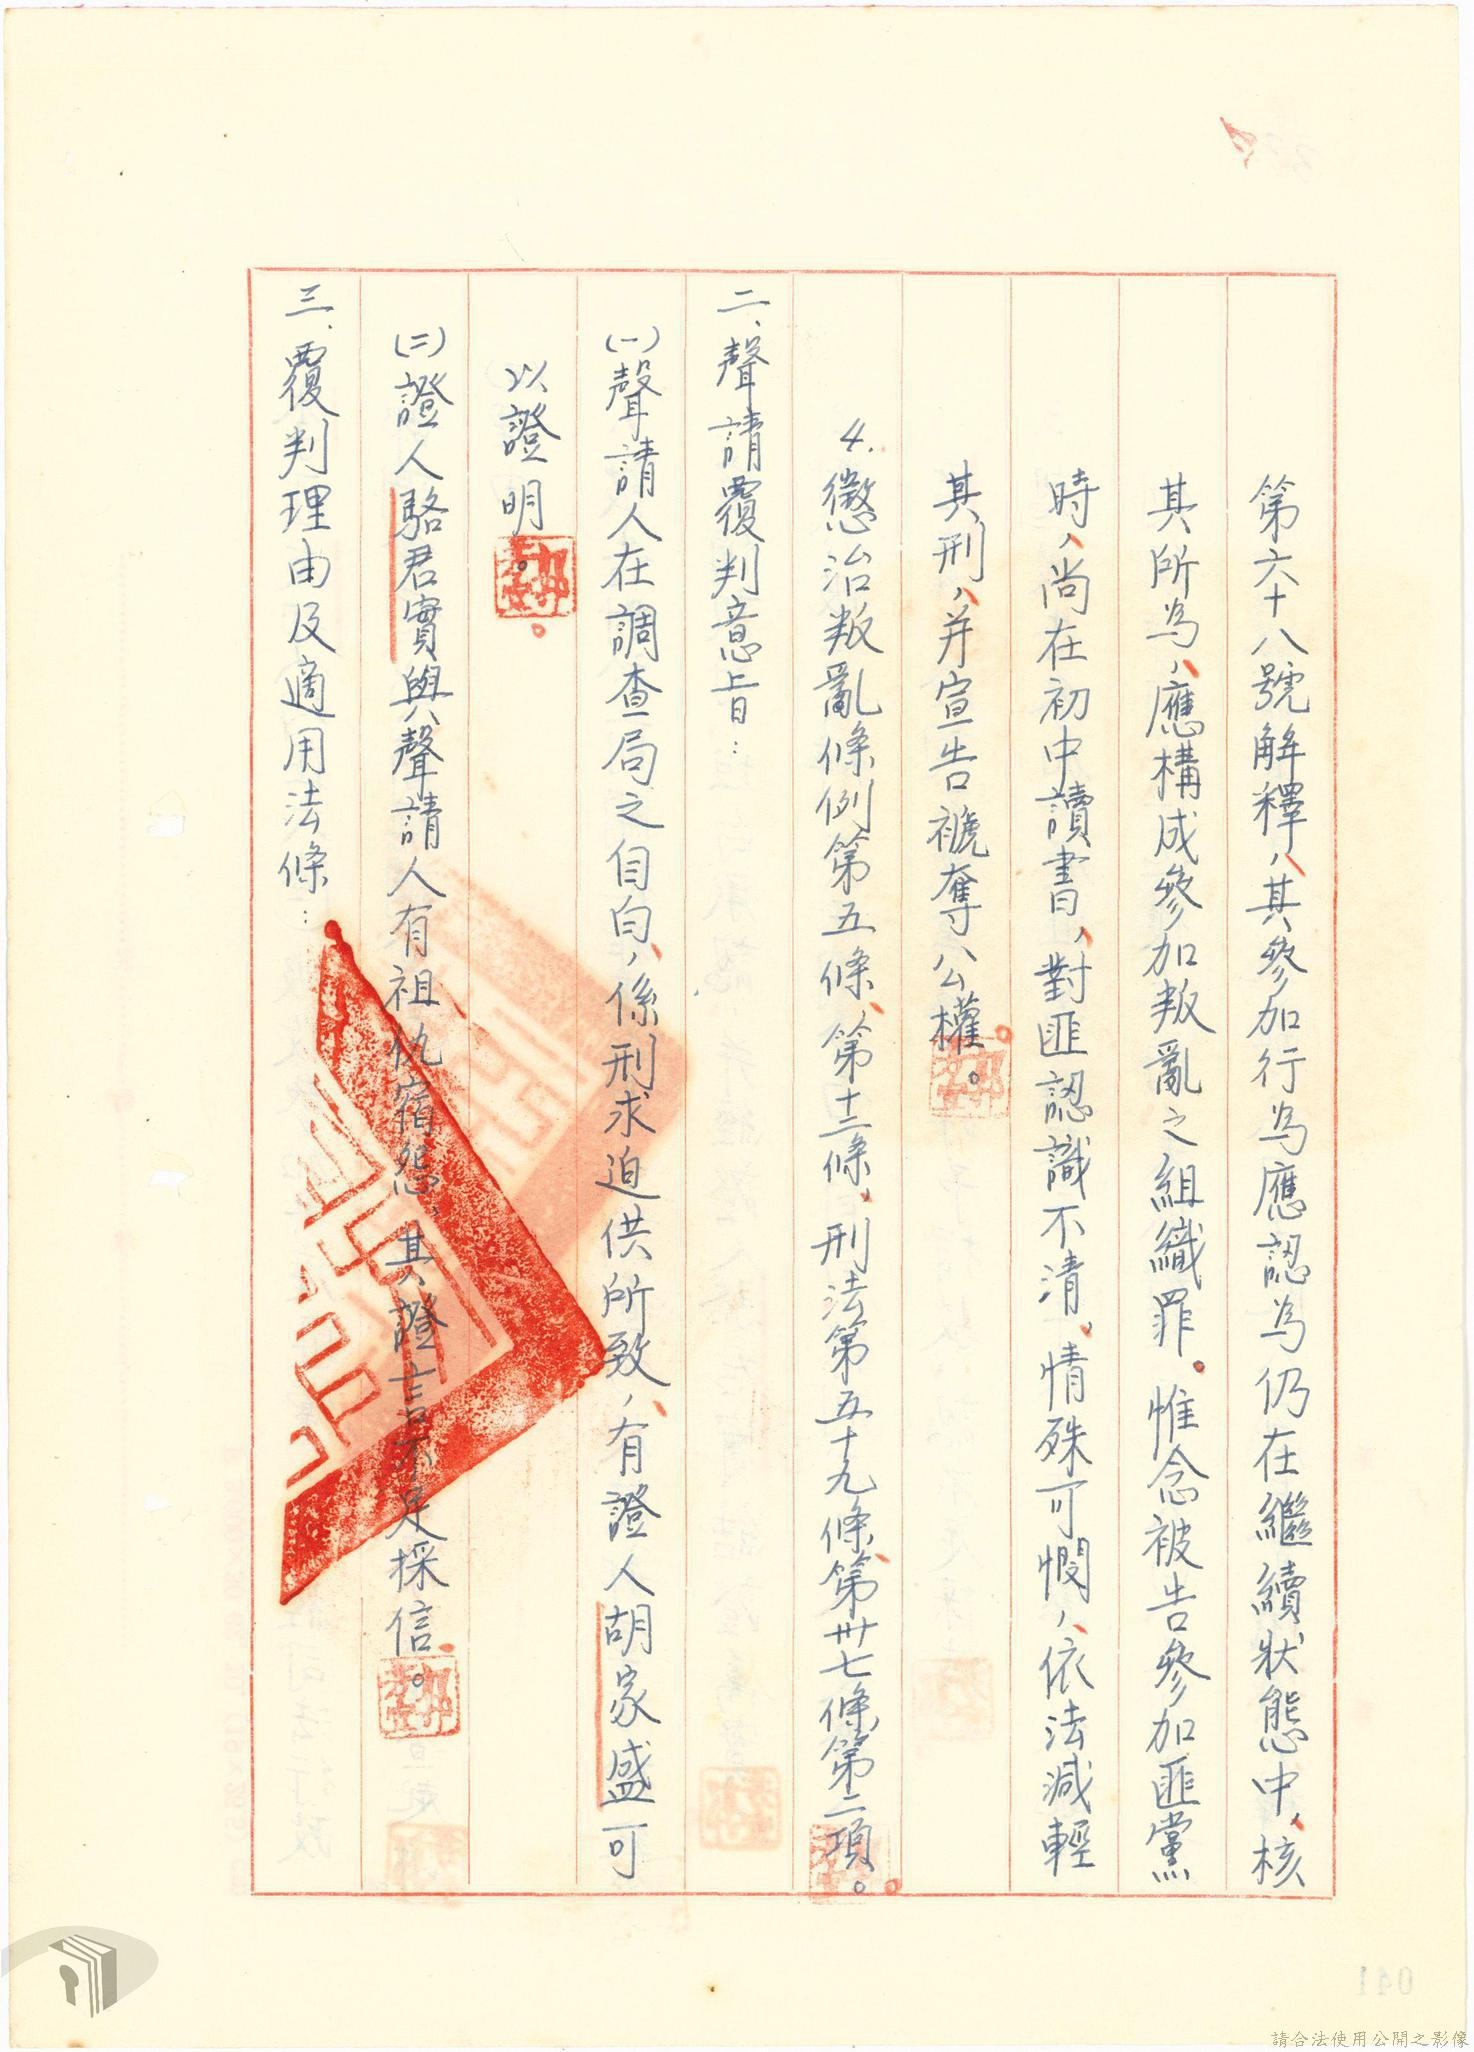 第六十八號解釋，其參加行為應認為仍在繼續狀態中，核
其所為，應構成參加叛亂之組織罪。惟念被告參加匪黨
時，尚在初中讀書，對匪認識不清，情殊可憫，依法減輕
其刑，并宣告褫奪公權。
4.懲治叛亂條例第五條、第十二條，刑法第五十九條、第卅七條第二項。
二、聲請覆判意旨：
(一)聲請人在調查局之自白，係刑求迫供所致，有證人胡家盛可
以證明。
(二)證人駱君實與聲請人有祖仇宿怨，其證言不足採信。
三、覆判理由及適用法條：
041
請合法使用公開之影像